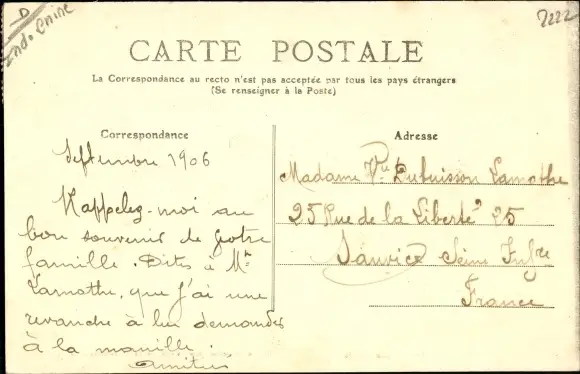 D
Indo Chine
2222
CARTE POSTALE
La Correspondance au recto n'est pas acceptée par tous les pays étrangers
(Se renseigner à la Poste)
Correspondance
Septembre 1906
Rappelez-moi au
bon souvenir de votre
famille. Dites à Mr
Lamothe, que j'ai une
revanche à lui demander
à la manille.
Amitiés
Adresse
Madame Vve Dubuisson Lamothe
25 Rue de la Liberté 25
Sanvic Seine Infre
France